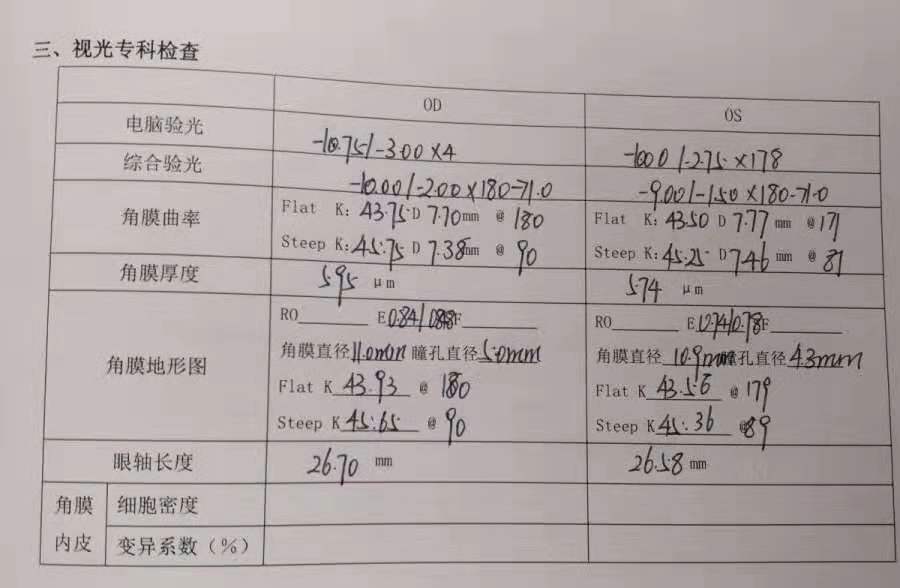 三、视光专科检查
OD OS
电脑验光 -10.75/-3.00×4 -10.00/-2.75×178
综合验光 -10.00/-2.00×180-71.0 -9.00/-1.50×180-71.0
角膜曲率 Flat K: 43.75 D 7.70mm @ 180 Flat K: 43.50 D 7.77 mm @171
Steep K: 45.75 D 7.38mm @ 90 Steep K: 45.25 D 7.46 mm @ 81
角膜厚度 595 μm 574 μm
角膜地形图 RO E 0.84/ F RO E 0.74/0.78F
角膜直径11.0mm 瞳孔直径5.0mm 角膜直径 10.9mm瞳孔直径4.3mm
Flat K 43.93 @ 180 Flat K 43.56 @ 179
Steep K 45.65 @ 90 Steep K 45.36 @89
眼轴长度 26.70 mm 26.58 mm
角膜内皮 细胞密度
变异系数（%）